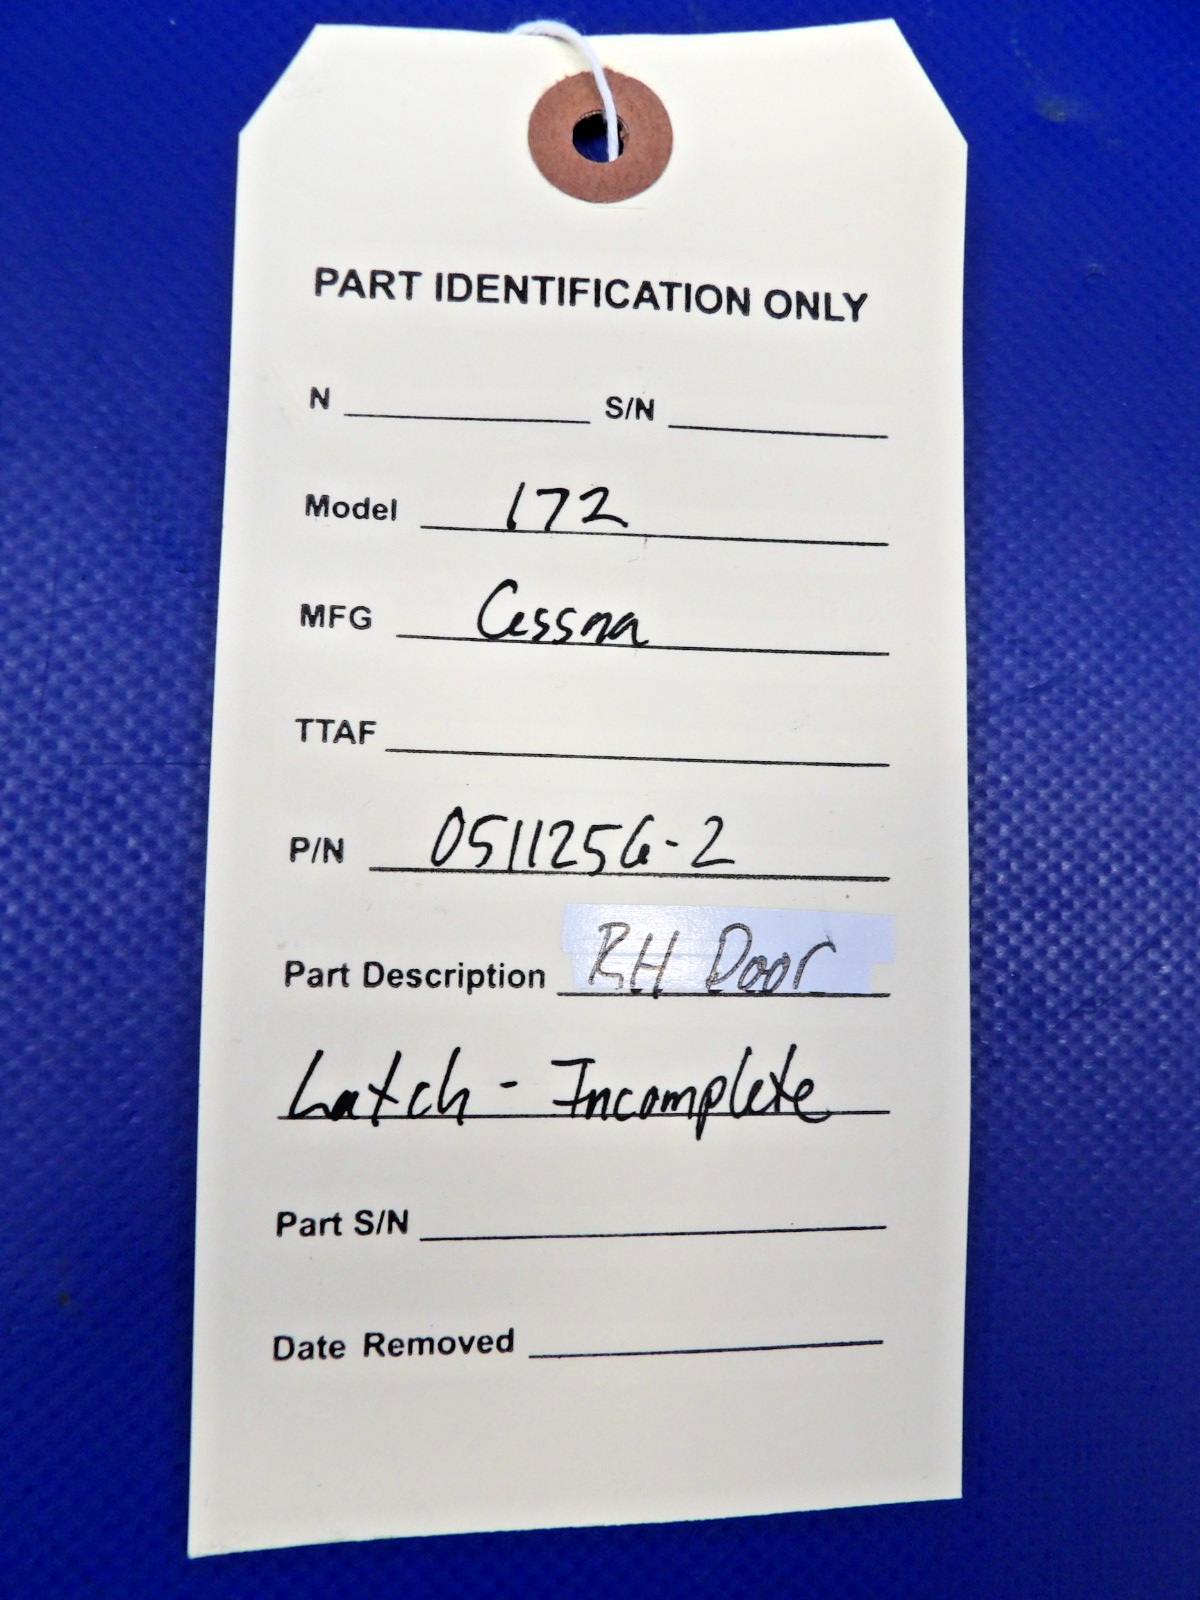 PART IDENTIFICATION ONLY
N S/N
Model 172
MFG Cessna
TTAF
P/N 0511256-2
Part Description RH Door
Latch - Incomplete
Part S/N
Date Removed